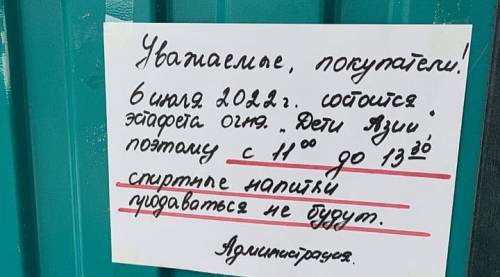 Уважаемые, покупатели!
6 июля 2022 г. состоится
эстафета огня "Дети Азии",
поэтому с 11⁰⁰ до 13³⁰
спиртные напитки
продаваться не будут.
Администрация.